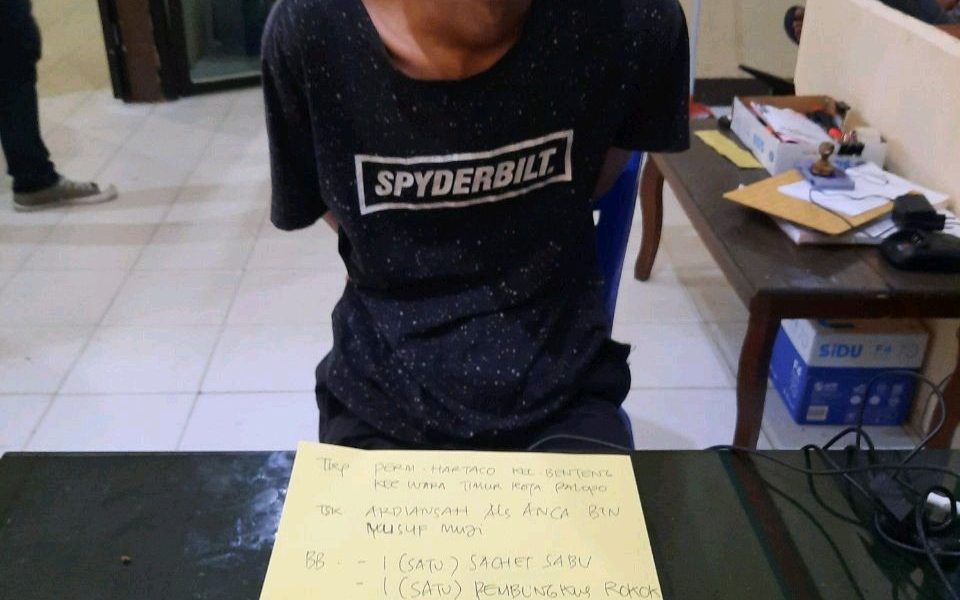 SPYDERBILT.
SiDU F4
Tkp PERM. HARTACO KEL. BENTENG
KEC WARA TIMUR KOTA PALOPO
TSK ARDIANSAH Als ANCA BIN
YUSUF MUZI
BB. - 1 (SATU) SACHET SABU
- 1 (SATU) PEMBUNGKUS ROKOK